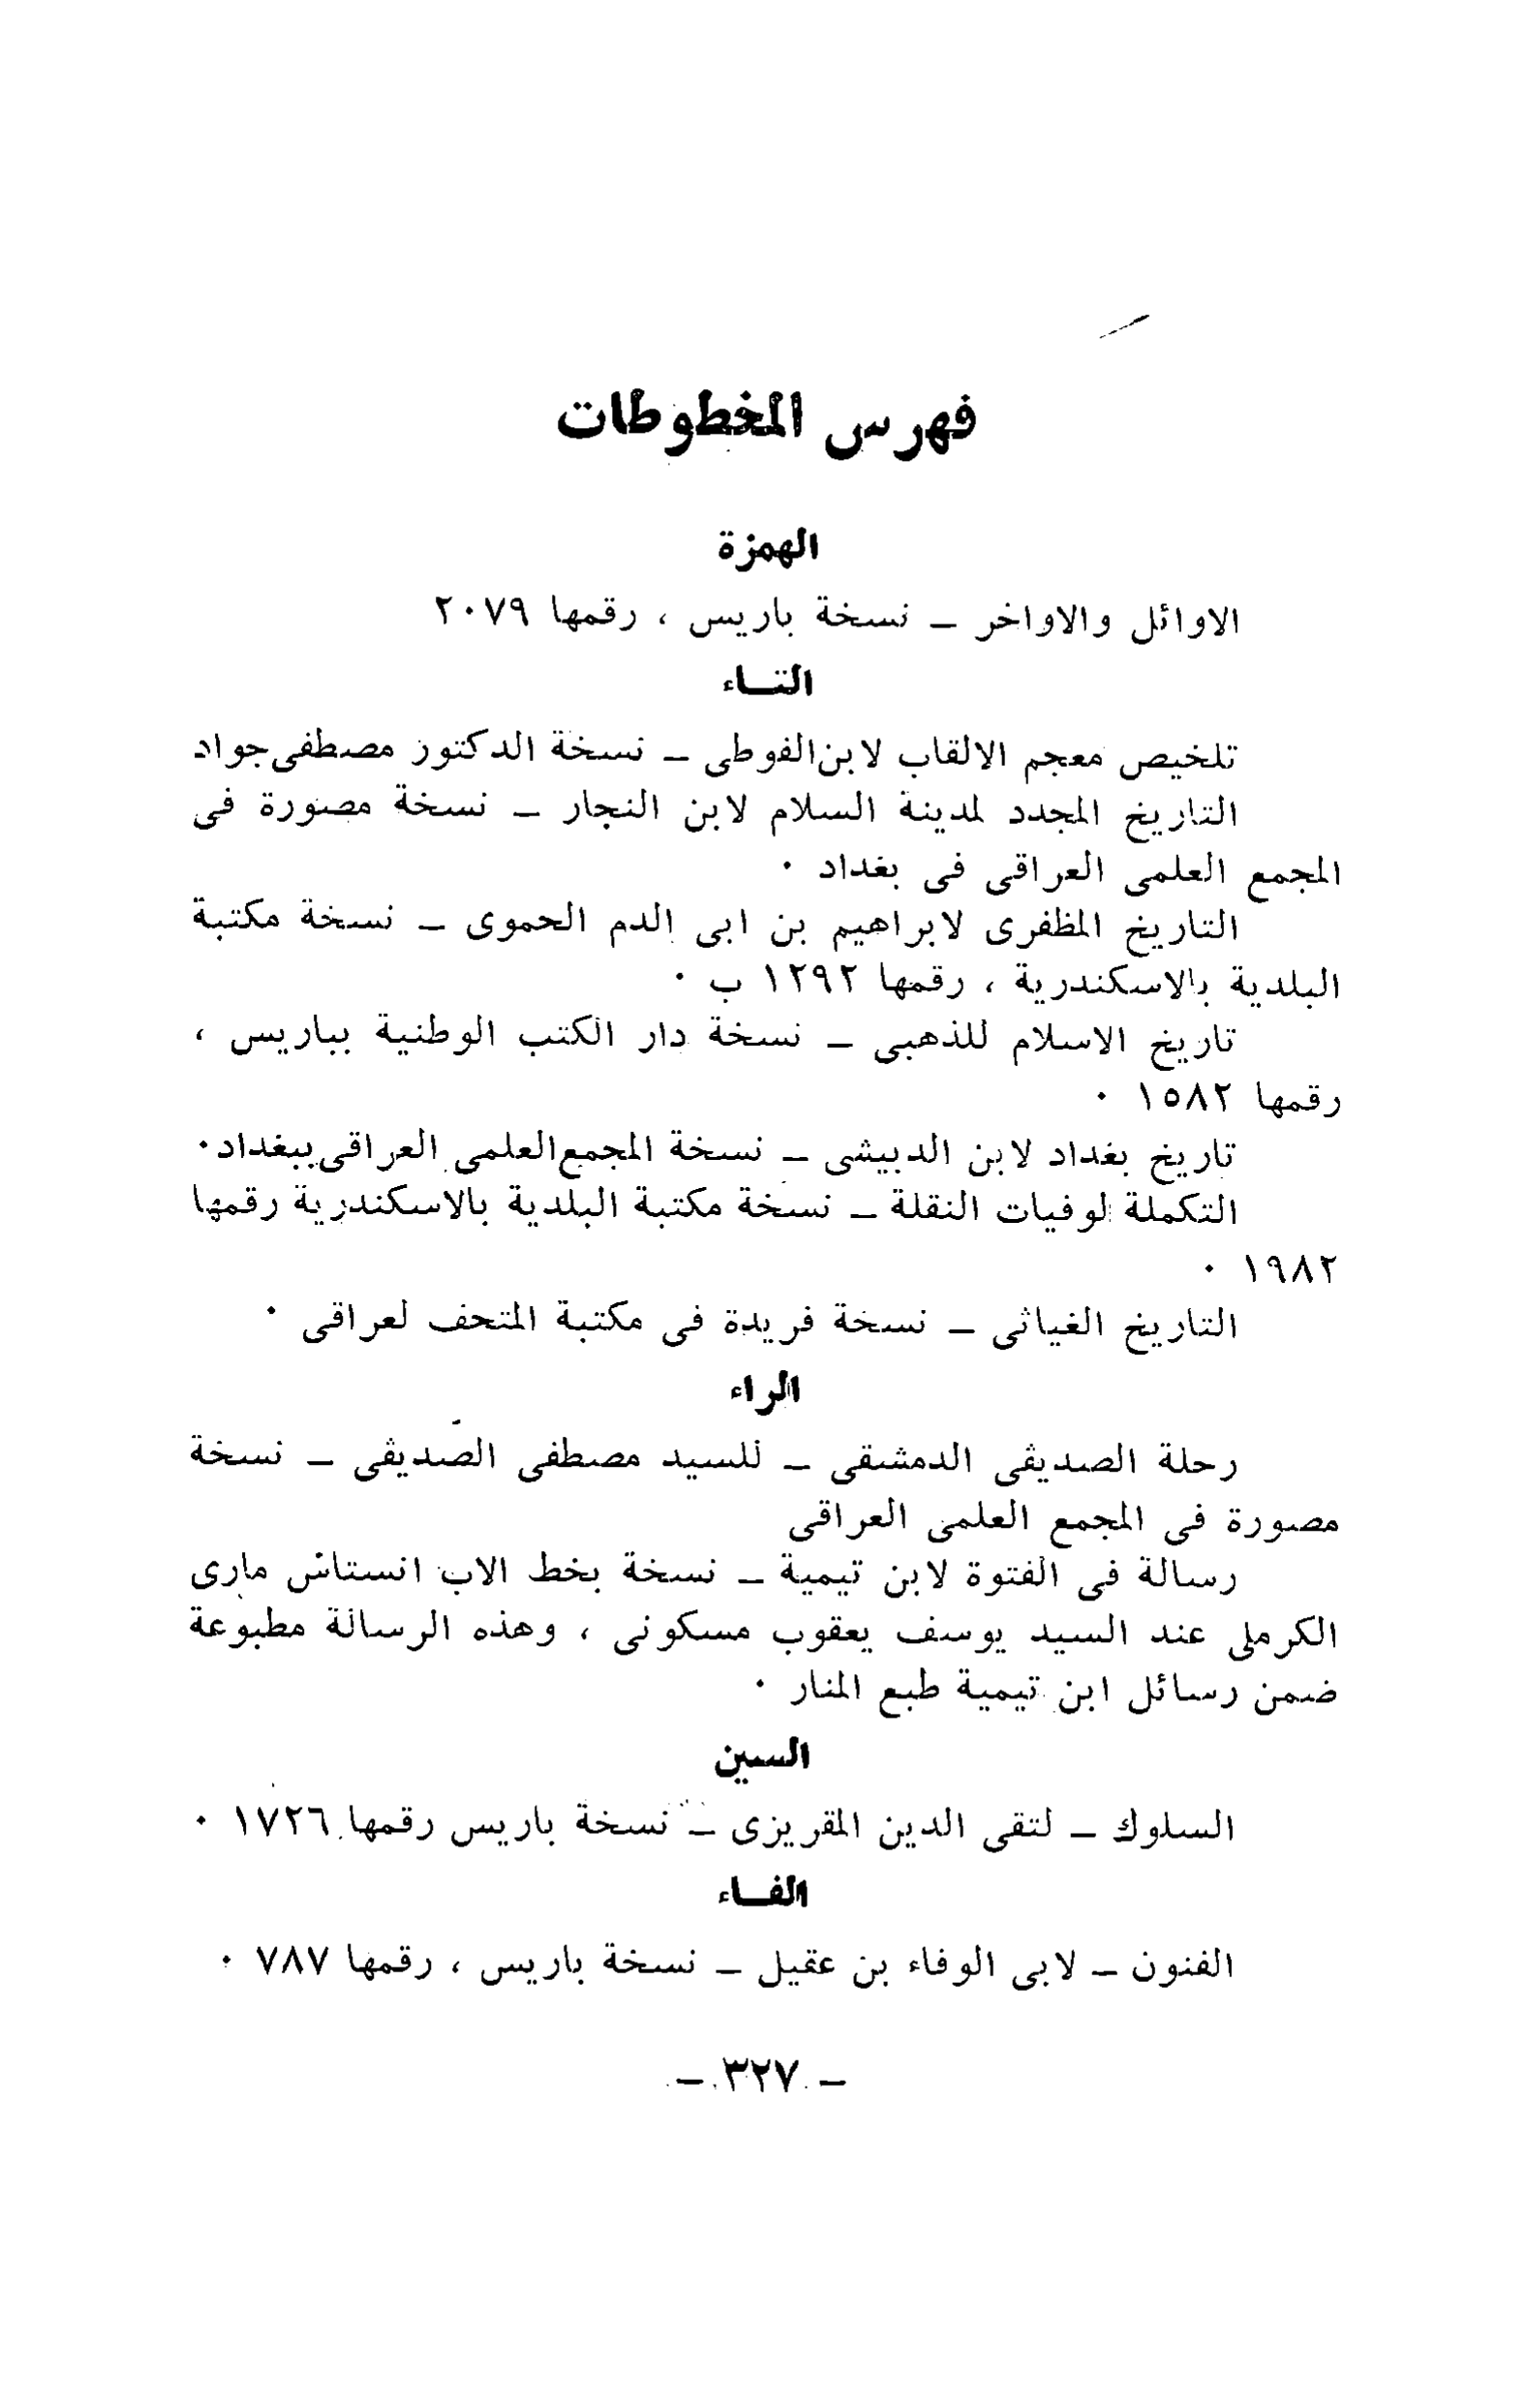 فهرس المخطوطات
الهمزة
الاوائل والاواخر ــ نسخة باريس ، رقمها ٢٠٧٩
التـاء
تلخيص معجم الالقاب لابن الفوطى ــ نسخة الدكتور مصطفى جواد
التاريخ المجدد لمدينة السلام لابن النجار ــ نسخة مصورة فى
المجمع العلمى العراقى فى بغداد ٠
التاريخ المظفرى لابراهيم بن ابى الدم الحموى ــ نسخة مكتبة
البلدية بالاسكندرية ، رقمها ١٢٩٢ ب ٠
تاريخ الاسلام للذهبى ــ نسخة دار الكتب الوطنية بباريس ،
رقمها ١٥٨٢ ٠
تاريخ بغداد لابن الدبيثى ــ نسخة المجمع العلمى العراقى ببغداد ٠
التكملة لوفيات النقلة ــ نسخة مكتبة البلدية بالاسكندرية رقمها
١٩٨٢ ٠
التاريخ الغياثى ــ نسخة فريدة فى مكتبة المتحف لعراقى ٠
الراء
رحلة الصديقى الدمشقى ــ للسيد مصطفى الصديقى ــ نسخة
مصورة فى المجمع العلمى العراقى
رسالة فى الفتوة لابن تيمية ــ نسخة بخط الاب انستاس مارى
الكرملى عند السيد يوسف يعقوب مسكونى ، وهذه الرسالة مطبوعة
ضمن رسائل ابن تيمية طبع المنار ٠
السين
السلوك ــ لتقى الدين المقريزى ــ نسخة باريس رقمها ١٧٢٦ ٠
الفـاء
الفنون ــ لابى الوفاء بن عقيل ــ نسخة باريس ، رقمها ٧٨٧ ٠
ــ ٣٢٧ ــ